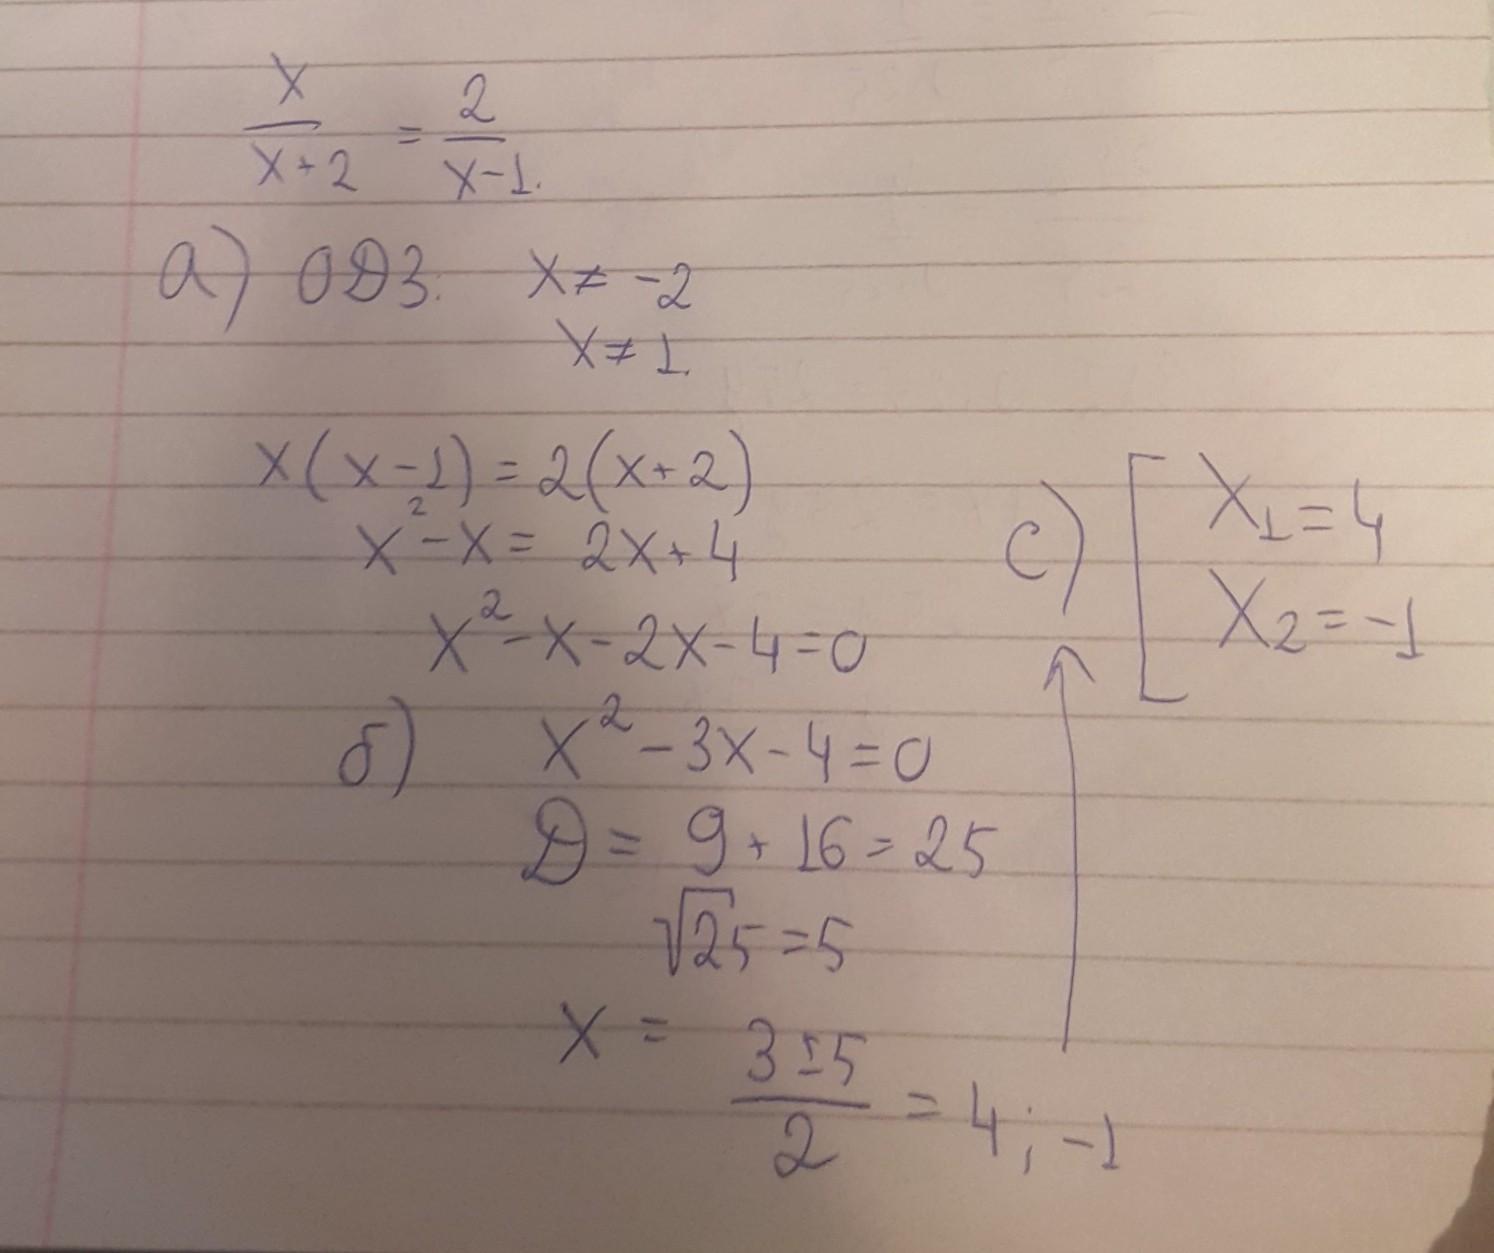 x/(x+2) = 2/(x-1).
а) ОДЗ: x ≠ -2
x ≠ 1.
x(x-1) = 2(x+2)
x² - x = 2x + 4
x² - x - 2x - 4 = 0
б) x² - 3x - 4 = 0
D = 9 + 16 = 25
√25 = 5
x = (3 ± 5)/2 = 4; -1
с) [ x₁ = 4
x₂ = -1